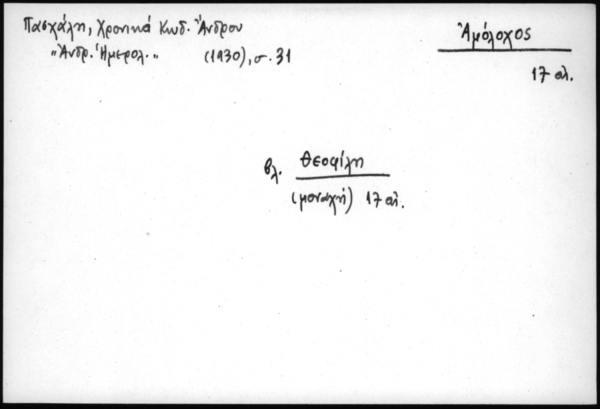 Πασχάλη, Χρονικά Κωδ. Ἄνδρου
„Ἀνδρ. Ἡμερολ.„ (1930), σ. 31
Ἀμόλοχος
17 αἰ.
βλ. Θεοφίλη
(μοναχή) 17 αἰ.